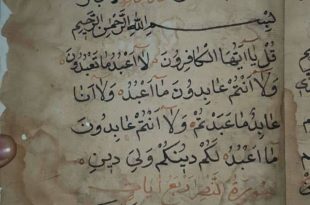 بِسْمِ اللهِ الرَّحْمٰنِ الرَّحِيمِ
قُلْ يَا أَيُّهَا الْكَافِرُونَ لَا أَعْبُدُ مَا تَعْبُدُونَ
وَلَا أَنْتُمْ عَابِدُونَ مَا أَعْبُدُ وَلَا أَنَا
عَابِدٌ مَا عَبَدْتُمْ وَلَا أَنْتُمْ عَابِدُونَ
مَا أَعْبُدُ لَكُمْ دِينُكُمْ وَلِيَ دِينِ
سورة النصر